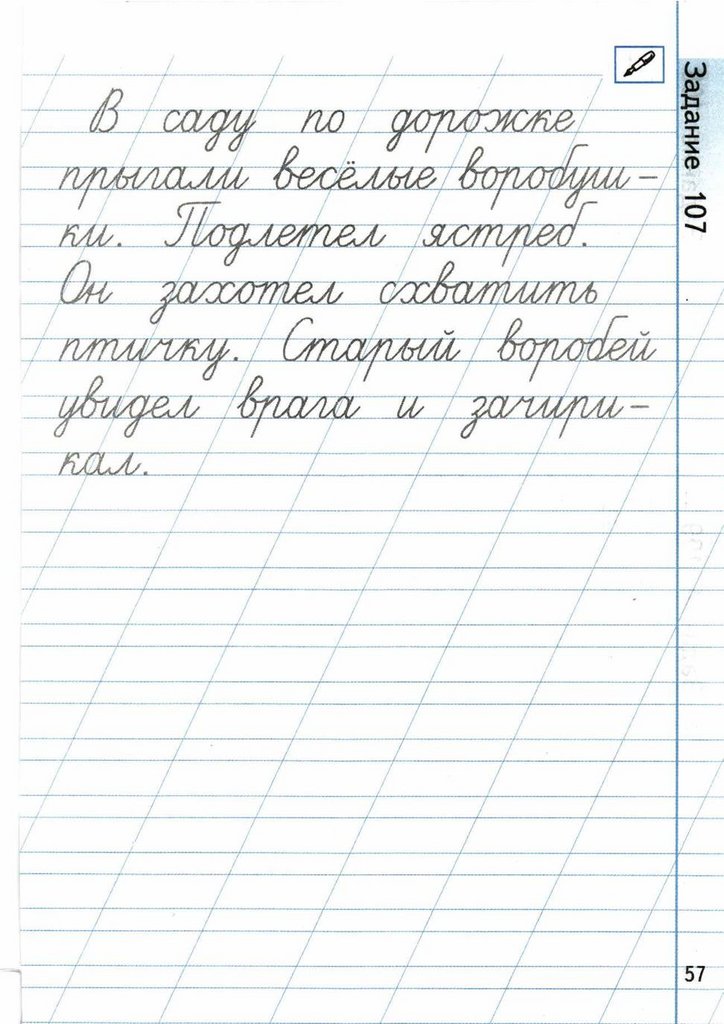 Задание 107
В саду по дорожке
прыгали весёлые воробуш-
ки. Подлетел ястреб.
Он захотел схватить
птичку. Старый воробей
увидел врага и зачири-
кал.
57